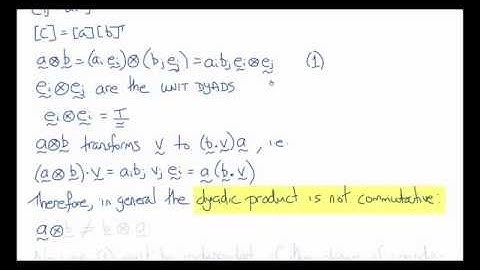 [C] = [a][b]ᵀ
a⊗b = (aᵢeᵢ)⊗(bⱼeⱼ) = aᵢbⱼeᵢ⊗eⱼ (1)
eᵢ⊗eⱼ are the UNIT DYADS
eᵢ⊗eᵢ = I
a⊗b transforms v to (b.v)a, i.e.
(a⊗b).v = aᵢbⱼvⱼeᵢ = a(b.v)
Therefore, in general the dyadic product is not commutative:
a⊗b ≠ b⊗a